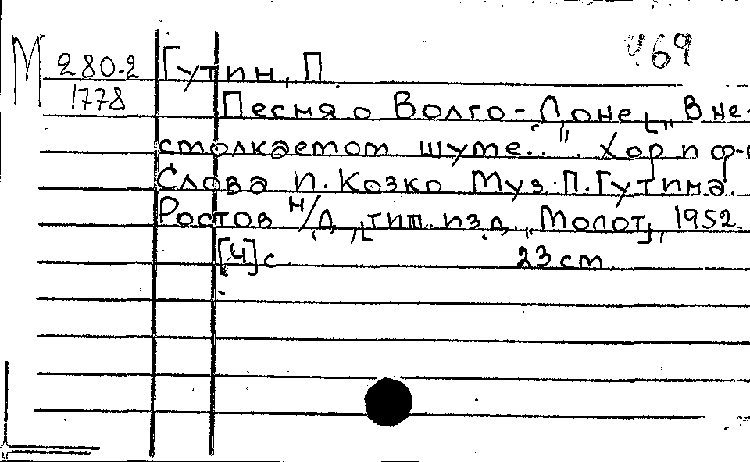 469
М 280-2 Гутин, П.
1778
Песня о Волго-Доне ["В не-
столкаетом шуме..." Хор п ф-п
Слова И. Козко Муз. П. Гутина.
Ростов н/Д, тип. изд. "Молот", 1952.
[4] с 23 cm